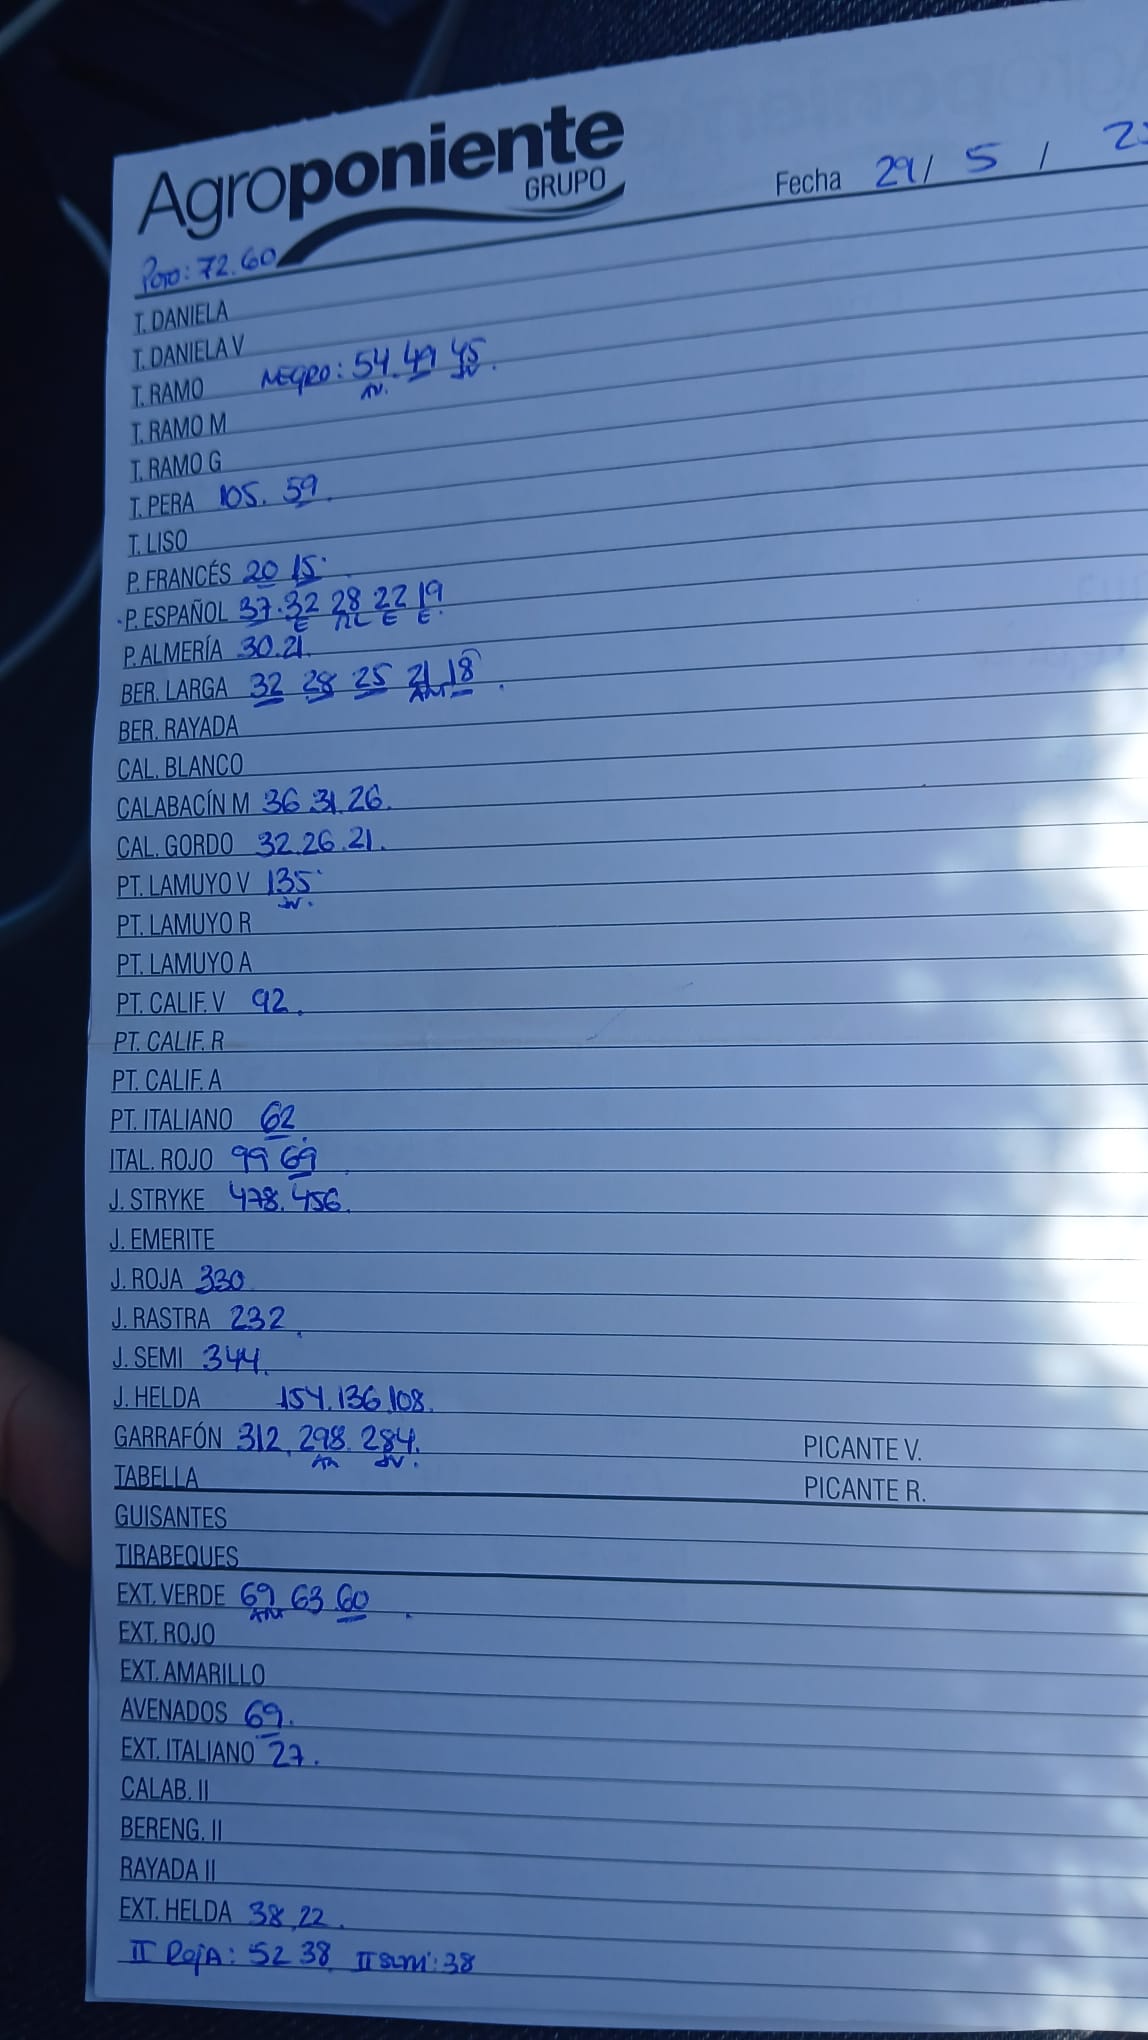 Agroponiente
GRUPO
Fecha 29/ 5 / 2
Poro: 72.60
T. DANIELA
T. DANIELA V
T. RAMO NEGRO: 54. 49 45.
T. RAMO M
T. RAMO G
T. PERA 105. 59.
T. LISO
P. FRANCÉS 20 15.
P. ESPAÑOL 37. 32 28 22 19
E E E.
P. ALMERÍA 30.21.
BER. LARGA 32 28 25 21 18.
BER. RAYADA
CAL. BLANCO
CALABACÍN M 36 31 26.
CAL. GORDO 32.26.21.
PT. LAMUYO V 135.
PT. LAMUYO R
PT. LAMUYO A
PT. CALIF. V 92.
PT. CALIF. R
PT. CALIF. A
PT. ITALIANO 62.
ITAL. ROJO 99 69
J. STRYKE 478. 456.
J. EMERITE
J. ROJA 330
J. RASTRA 232
J. SEMI 344.
J. HELDA 154.136.108.
GARRAFÓN 312. 298. 284. PICANTE V.
TABELLA PICANTE R.
GUISANTES
TIRABEQUES
EXT. VERDE 69 63 60.
EXT. ROJO
EXT. AMARILLO
AVENADOS 69.
EXT. ITALIANO 27.
CALAB. II
BERENG. II
RAYADA II
EXT. HELDA 38.22.
II ROJA: 52 38 II SEMI: 38